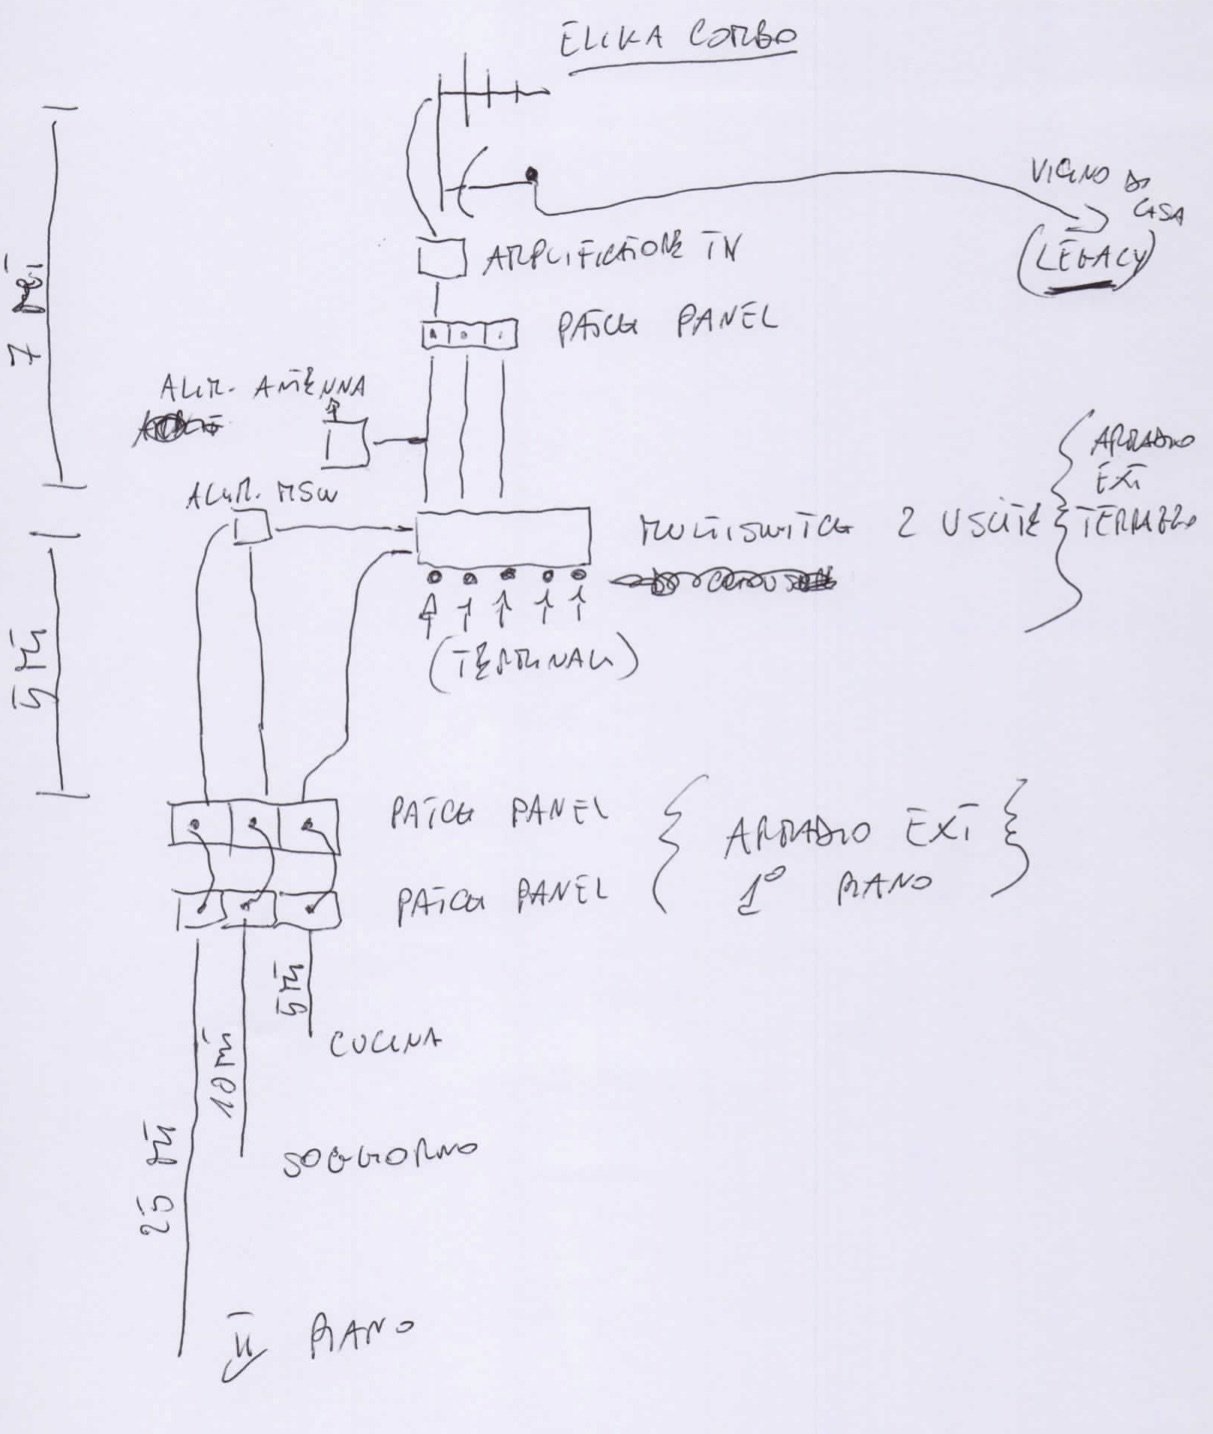 ELIKA COMBO
VICINO DI
CASA
(LEGACY)
AMPLIFICATORE TV
PATCH PANEL
7 Mt
ALIM. ANTENNA
ALIM. MSW
MULTISWITCH 2 USCITE
ARMADIO
EXT
TERRAZZO
(TERMINALI)
5 Mt
PATCH PANEL
PATCH PANEL
ARMADIO EXT
1° PIANO
5 Mt
CUCINA
10 mt
SOGGIORNO
25 Mt
II PIANO